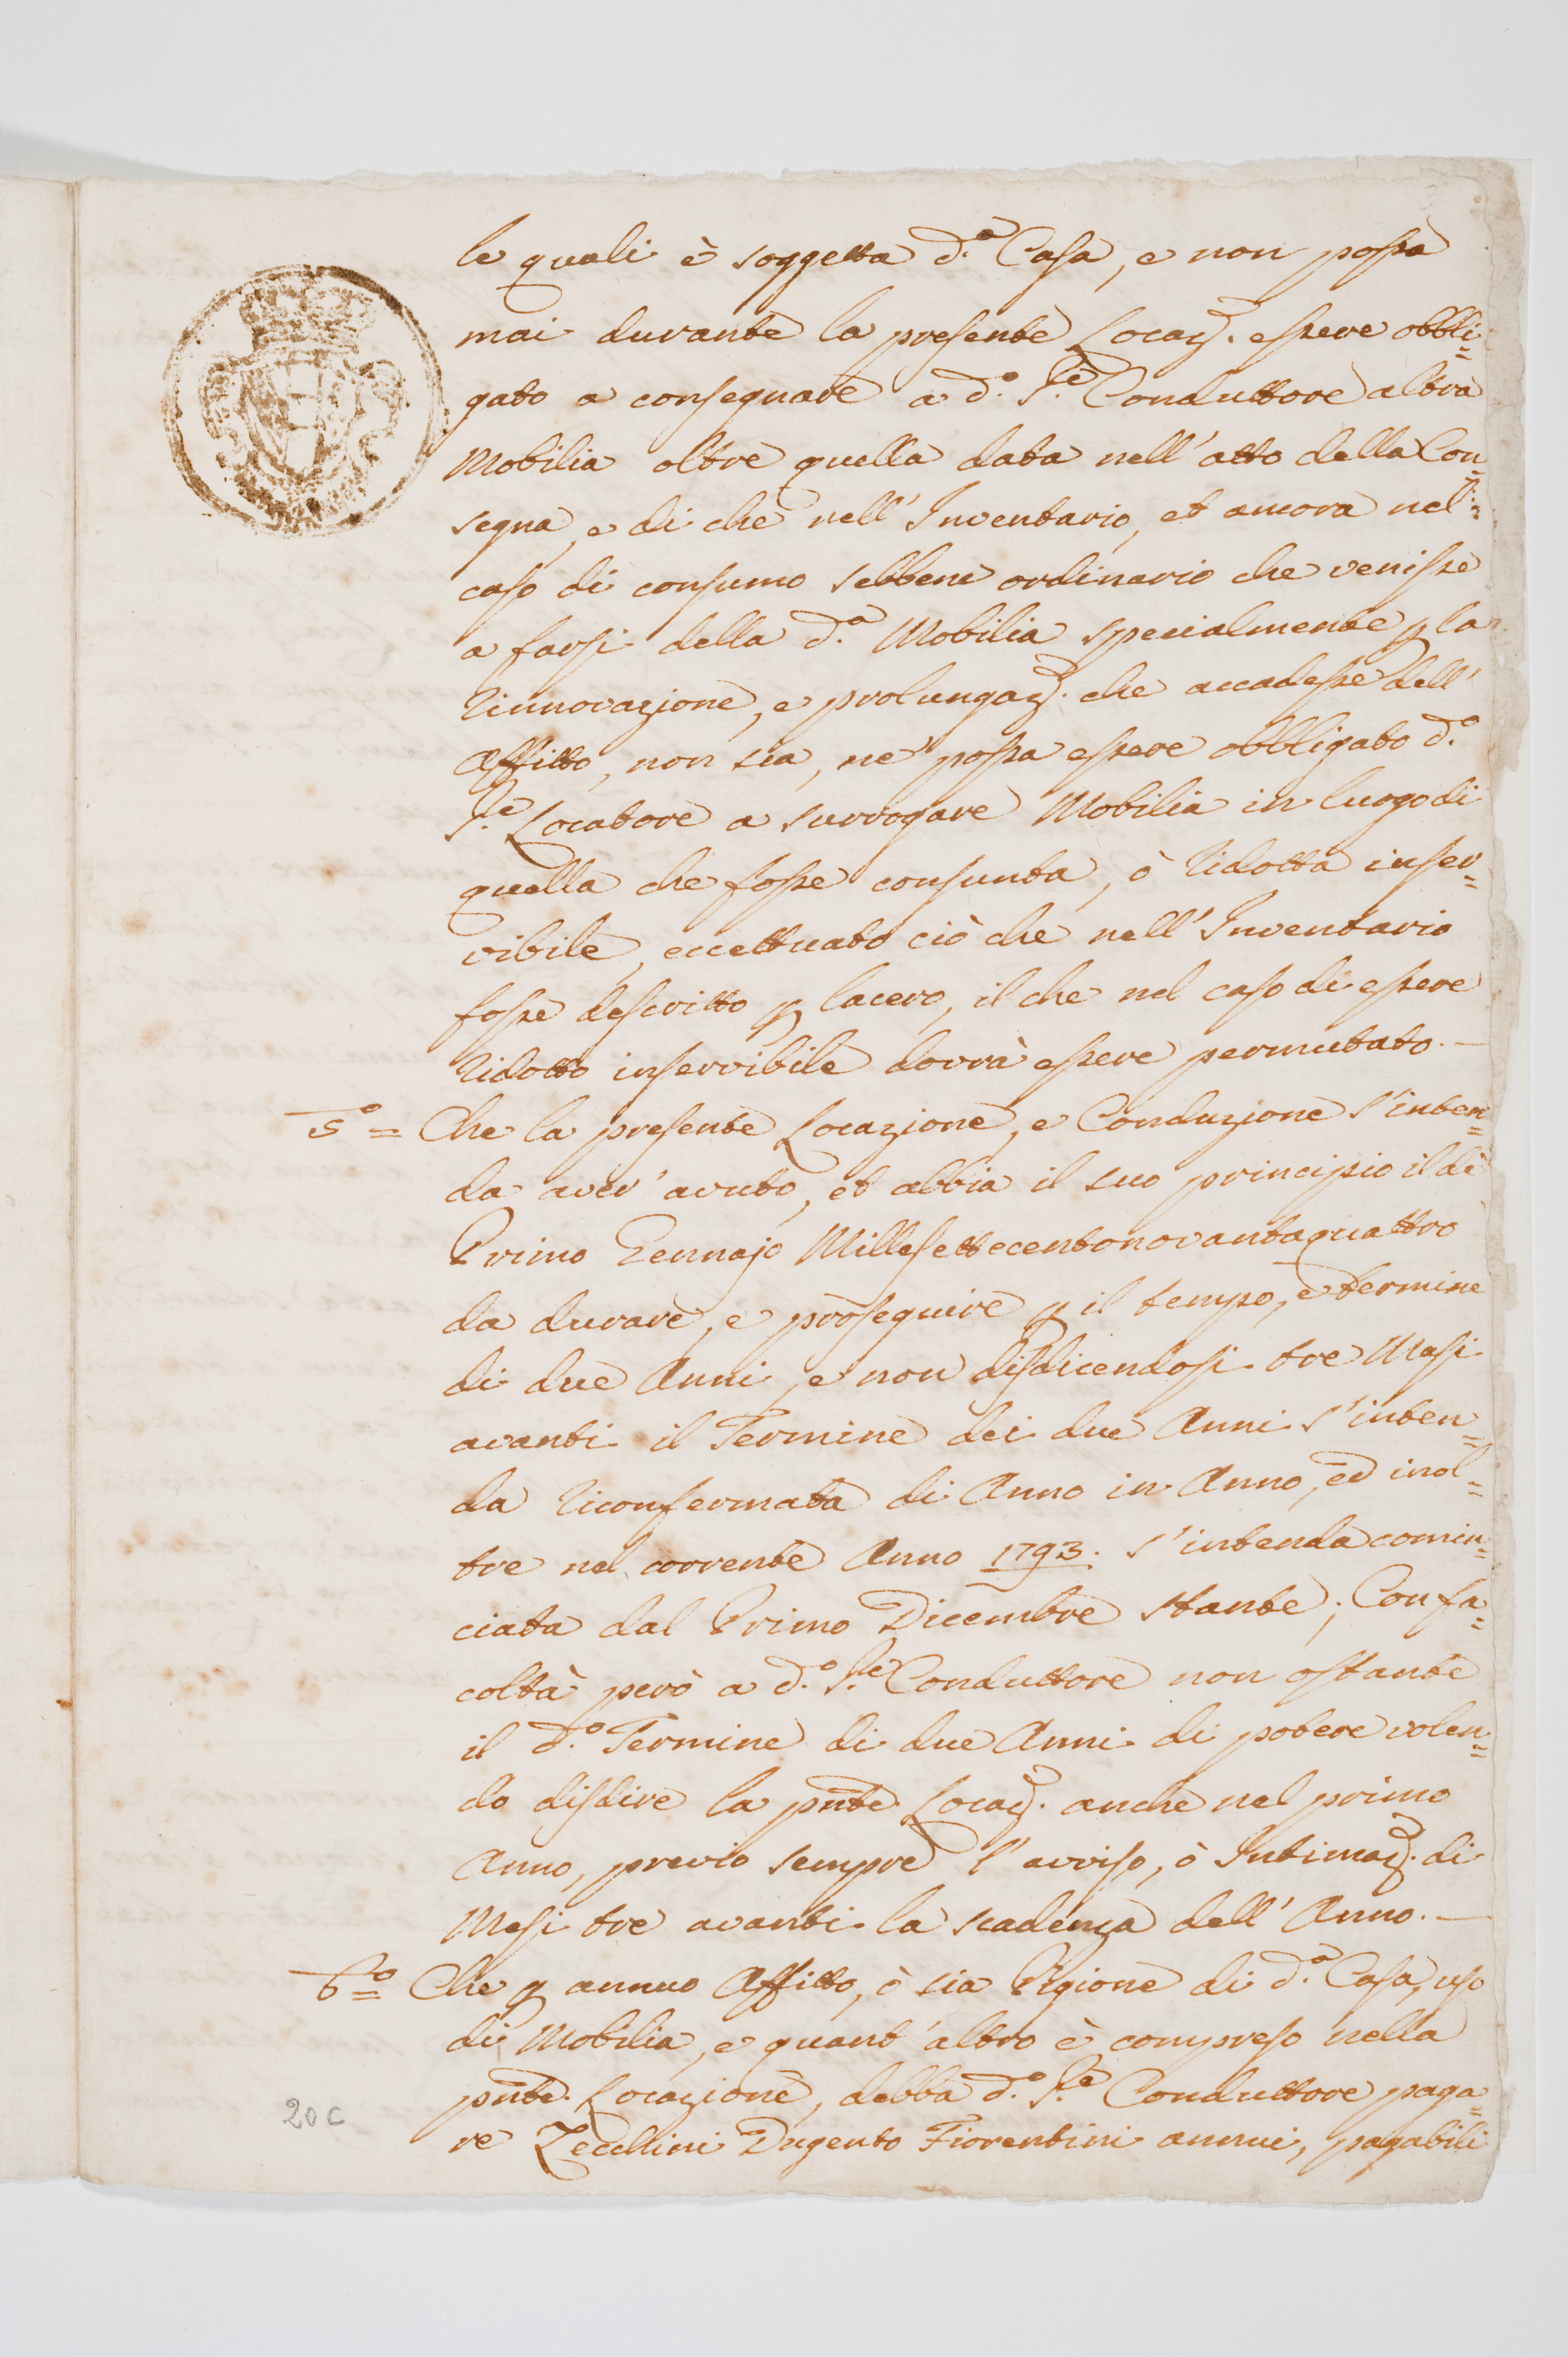 le quali è soggetta d.ª Casa, e non possa
mai durante la presente Locaz. essere obbli=
gato a consegnare a d.º S.e Conduttore altra
Mobilia oltre quella data nell' atto della Con=
segna, e di che nell' Inventario, et ancora nel=
caso di consumo sebbene ordinario che venisse
a farsi della d.ª Mobilia specialmente p la
rinnovazione, e prolungaz. che accadesse dell'
Affitto, non sia, ne possa essere obbligato d.º
S.e Locatore a surrogare Mobilia in luogo di
quella che fosse consunta, ò ridotta inser=
vibile, eccettuato ciò che nell' Inventario
fosse descritto p lacero, il che nel caso di essere
ridotto inservibile dovrà essere permutato. —
5º = Che la presente Locazione, e Conduzione s' inten=
da aver' avuto, et abbia il suo principio il dì
Primo Gennajo Millesettecentonovantaquattro
da durare, e proseguire p il tempo, e termine
di due Anni, e non disdicendosi tre Mesi
avanti il Termine dei due Anni s' inten=
da riconfermata di Anno in Anno, ed inol=
tre nel corrente Anno 1793. s' intenda comin=
ciata dal Primo Dicembre stante; Con fa=
coltà però a d.º S.e Conduttore non ostante
il d.º Termine di due Anni di potere volen=
do disdire la pnte Locaz. anche nel primo
Anno, previo sempre l' avviso, ò Intimaz. di
Mesi tre avanti la scadenza dell' Anno. —
6º = Che p annuo Affitto, ò sia Pigione di d.ª Casa, uso
di Mobilia, e quant' altro è compreso nella
pnte Locazione, debba d.º S.e Conduttore paga=
re Zecchini Dugento Fiorentini annui, pagabili
20 c